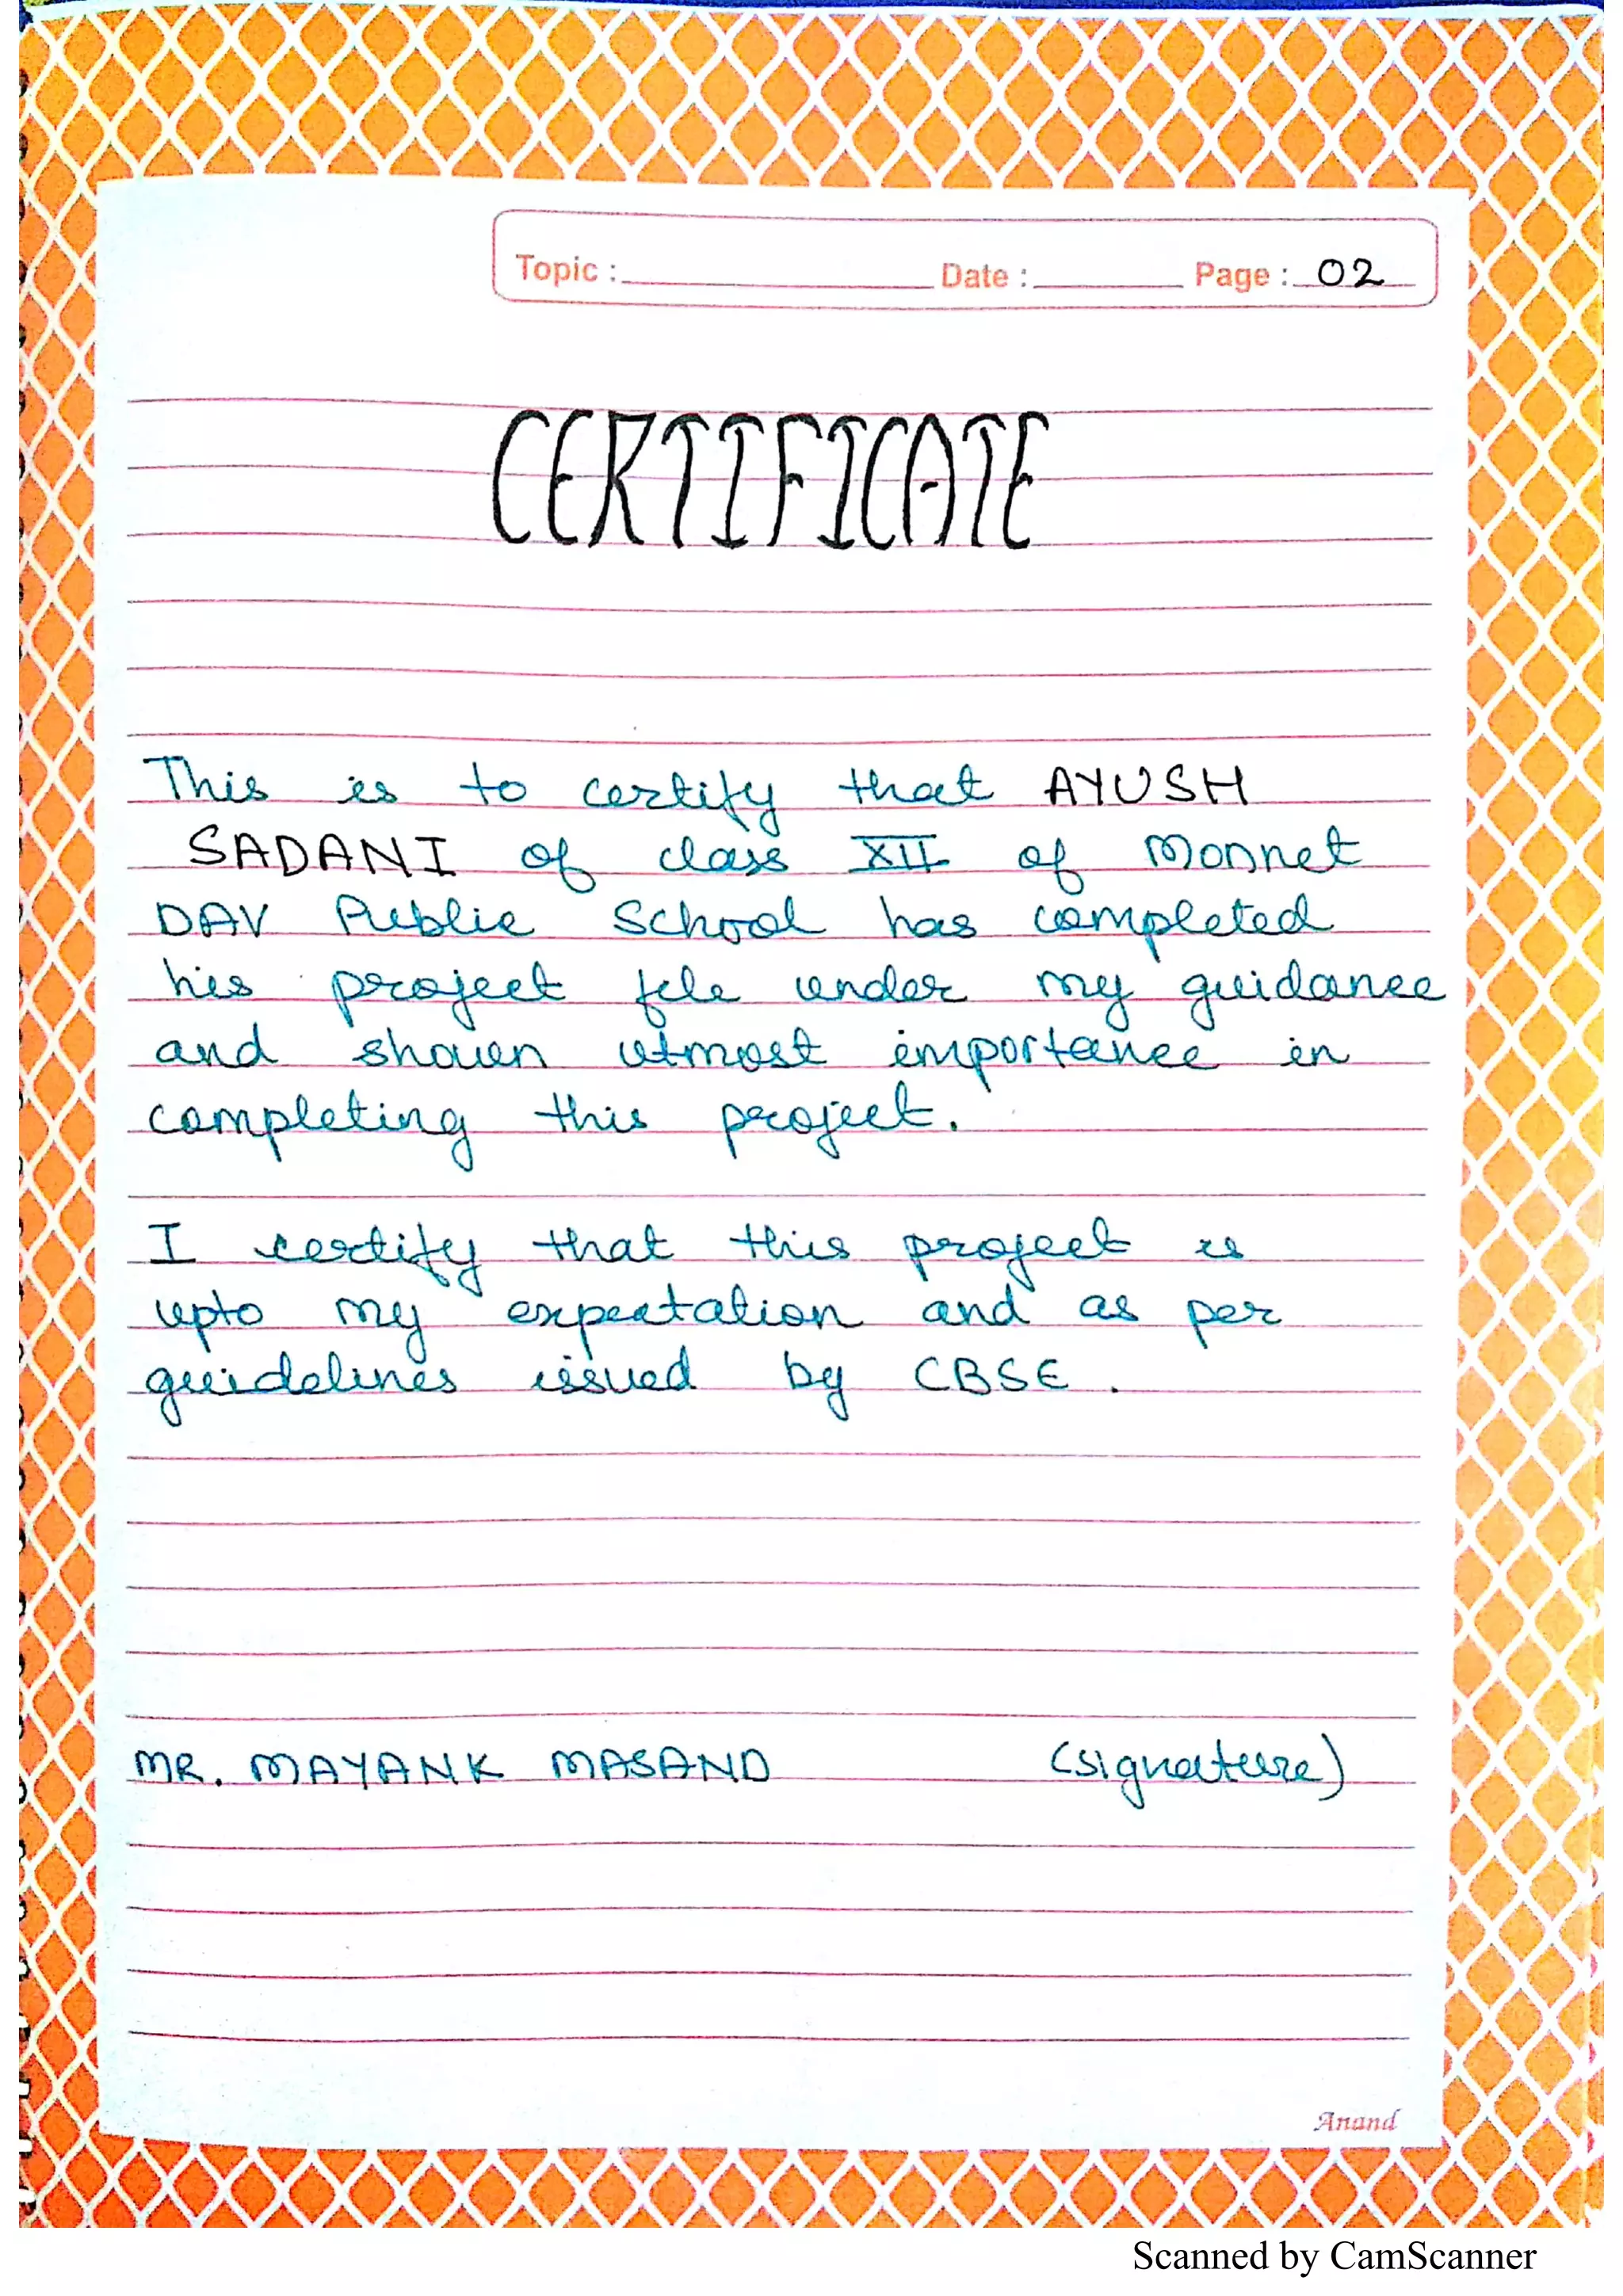 Topic : Date : Page : 02
CERTIFICATE
This is to certify that AYUSH
SADANI of class XII of Monnet
DAV Public School has completed
his project file under my guidance
and shown utmost importance in
completing this project.
I certify that this project is
upto my expectation and as per
guidelines issued by CBSE.
MR. MAYANK MASAND (signature)
Anand
Scanned by CamScanner